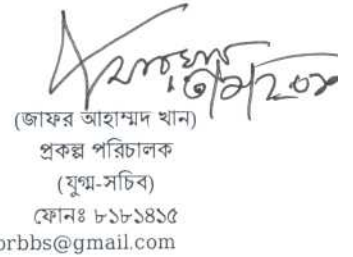 (জাফর আহাম্মদ খান)
প্রকল্প পরিচালক
(যুগ্ম-সচিব)
ফোনঃ ৮১৮১৪১৫
orbbs@gmail.com